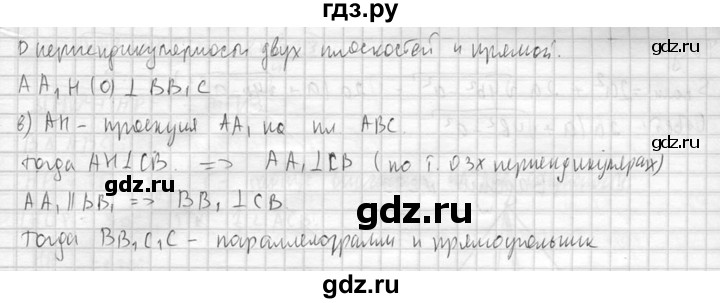 гдз.ру
D перпендикулярности двух плоскостей и прямой.
AA₁H (O) ⊥ BB₁C
в) AH - проекция AA₁ на пл ABC.
тогда AH⊥CB. => AA₁⊥CB (по т. о 3х перпендикулярах)
AA₁ || BB₁ => BB₁ ⊥CB
тогда BB₁C₁C - параллелограмм и прямоугольник
gdz.ru
gdz.ru
gdz.ru
gdz.ru